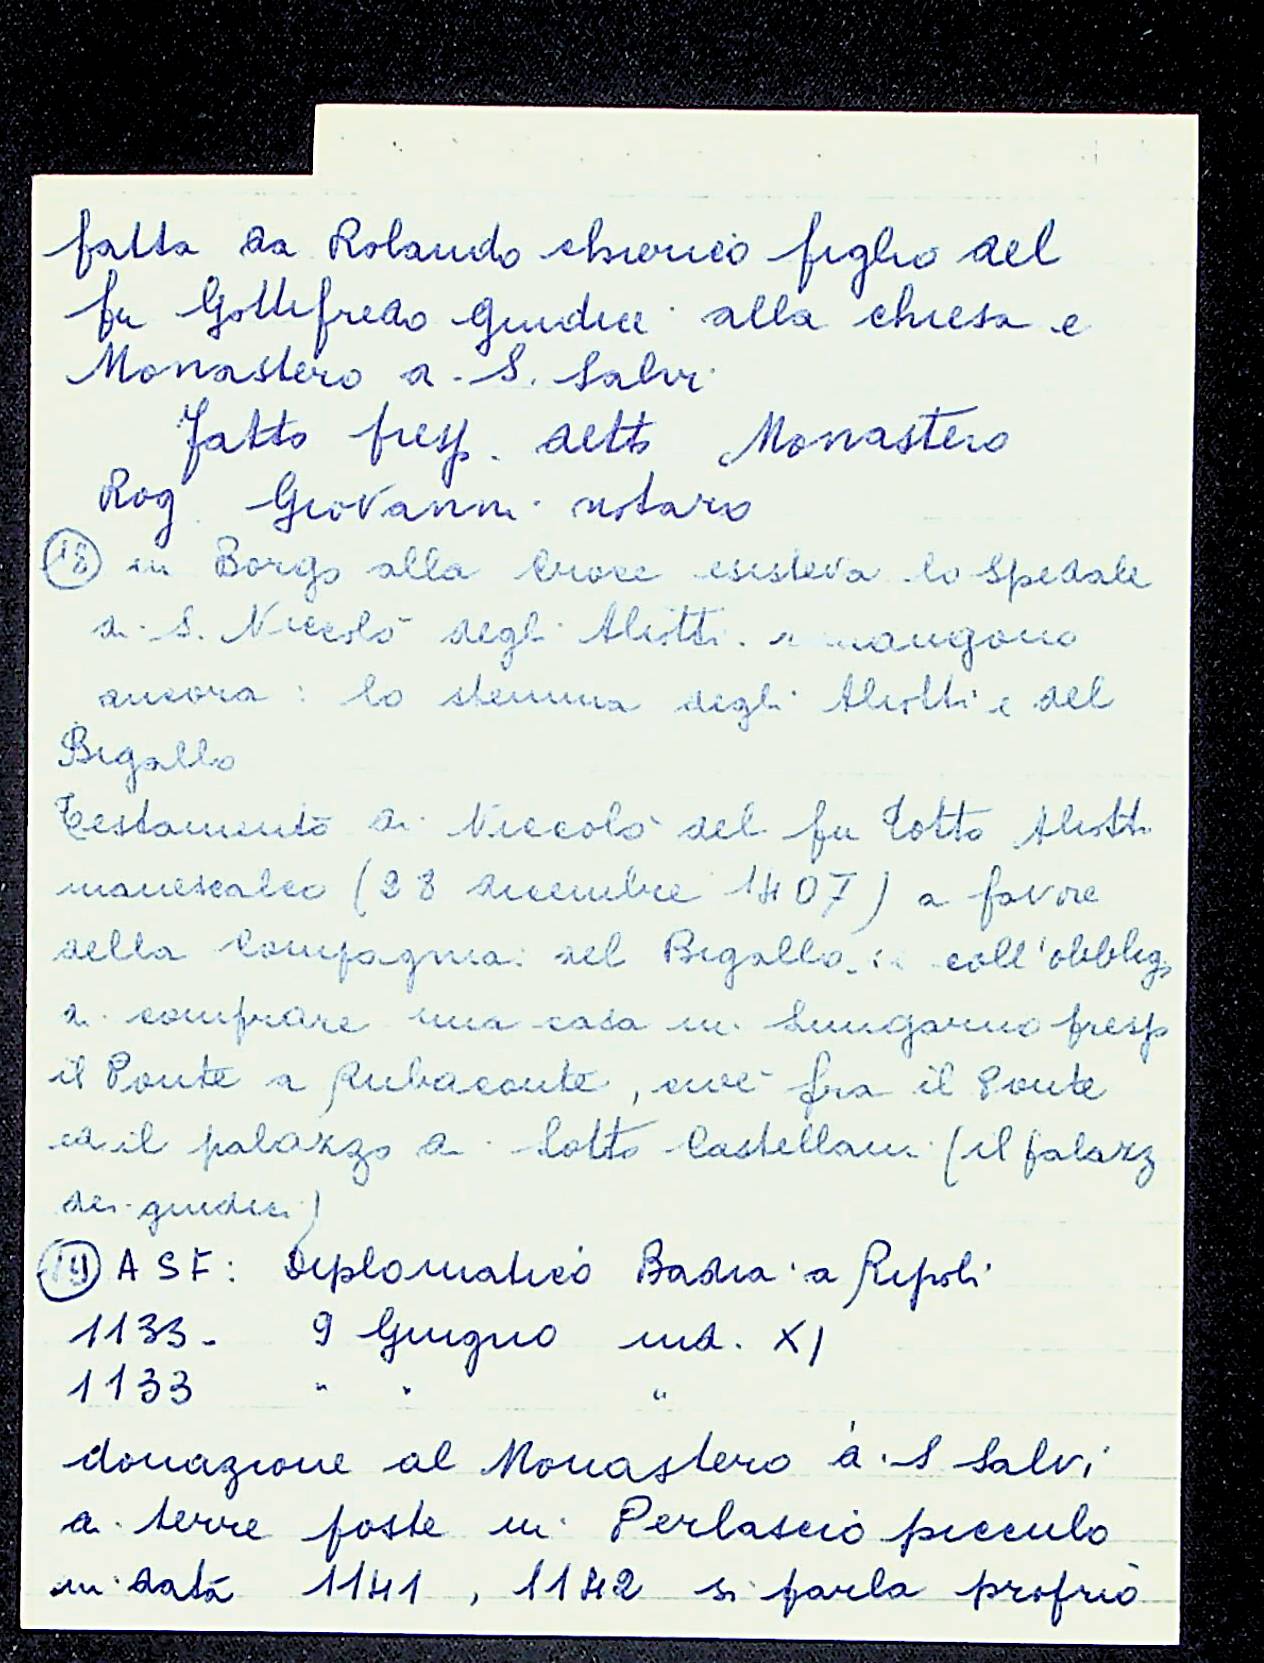 fatta da Rolando chierico figlio del
fu Gottifredo giudice alla chiesa e
Monastero di S. Salvi
Fatto presp. detto Monastero
Rog Giovanni notaro
(18) in Borgo alla Croce esisteva lo Spedale
di S. Niccolò degli Aliotti. rimangono
ancora: lo stemma degli Aliotti e del
Bigallo
Testamento di Niccolò del fu Totto Aliotti
manescalco (28 dicembre 1407) a favore
della Compagnia del Bigallo coll'obbligo
di comprare una casa in Lungarno presp
il Ponte a Rubaconte, cioè fra il Ponte
ed il palazzo di Lotto Castellani (il palazz
dei giudici)
(19) ASF: Diplomatico Badia a Ripoli
1133 - 9 Giugno ind. XI
1133 " " "
donazione al Monastero di S Salvi
di terre poste in Perlascio picculo
in data 1141, 1142 si parla proprio